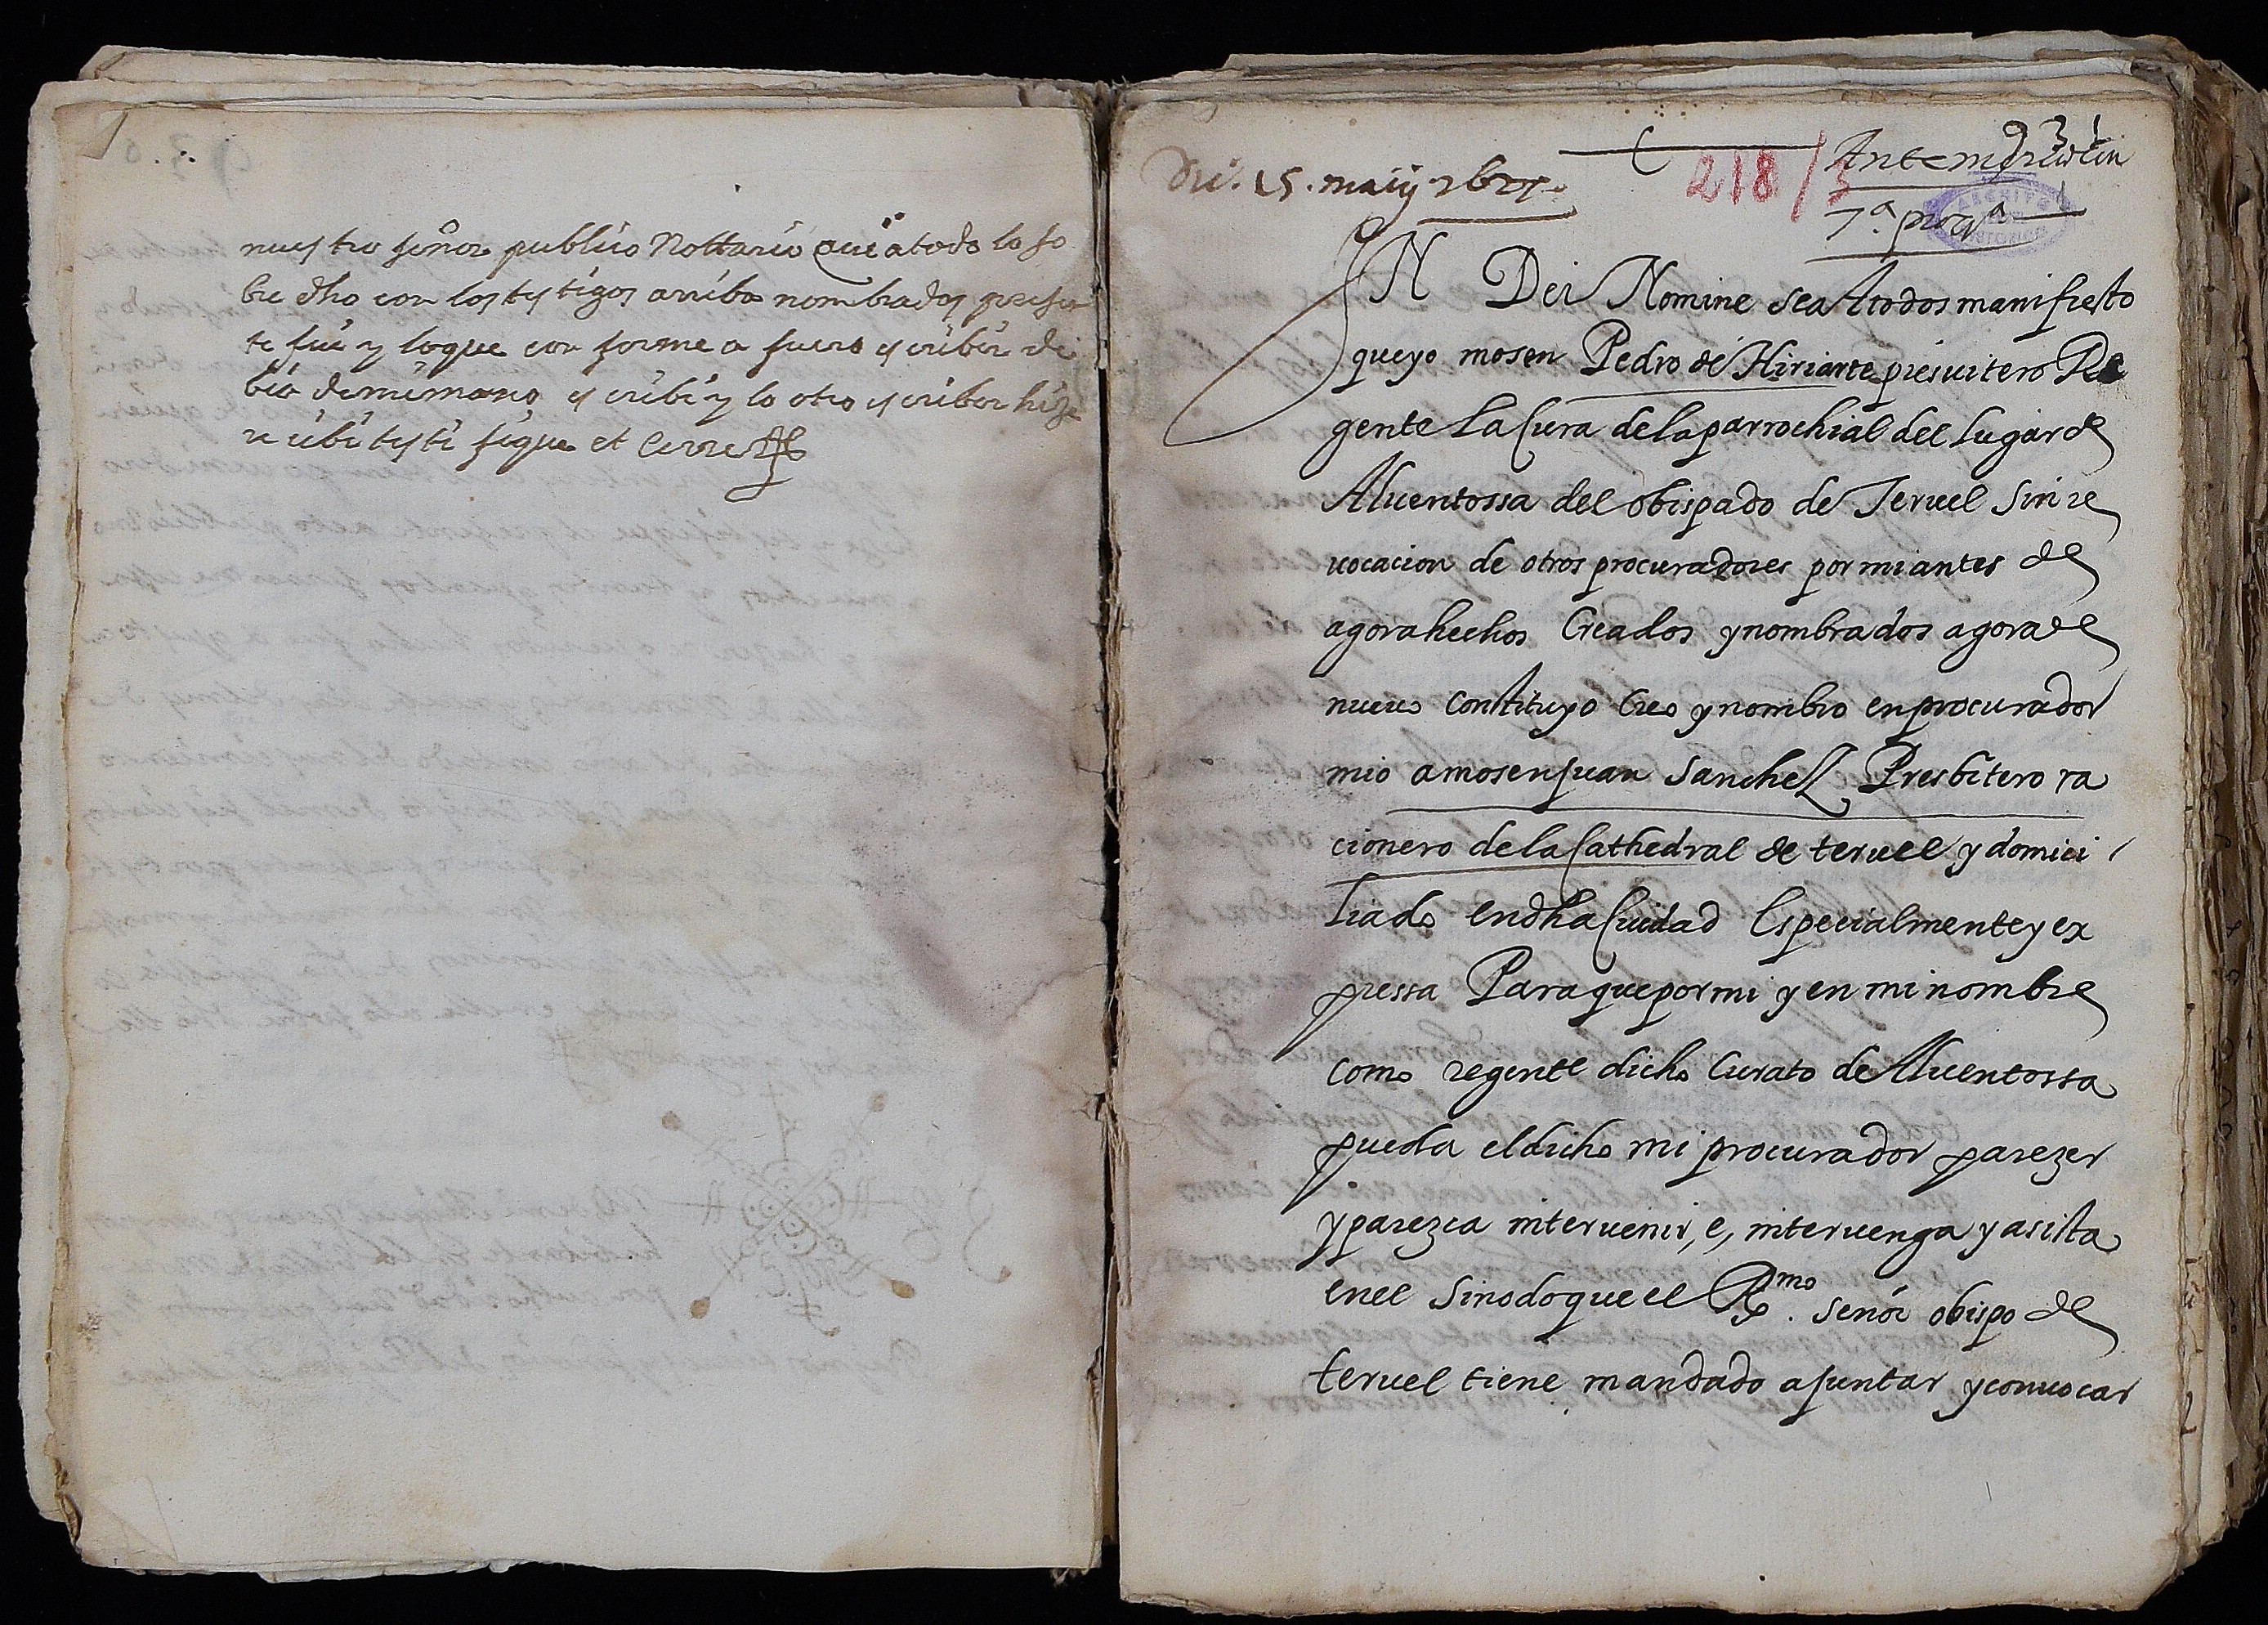 nuestro señor publico Nottario que a todo lo so
bre dho con los testigos arriba nombrados presen
te fui y lo que conforme a fuero escribir de
bia de mi mano escribi y lo otro escribir hize
et cerre
Die. 15. maij
218/3
931
7.ª procª
IN Dei Nomine sea A todos manifiesto
que yo mosen Pedro de Hiriarte presuitero Re
gente La Cura de la parrochial del Lugar de
Aluentossa del obispado de Teruel sin re
uocacion de otros procuradores por mi antes de
agora hechos Creados y nombrados agora de
nueuo constituyo Creo y nombro en procurador
mio a mosen Juan Sanchez Presbitero ra
cionero de la Cathedral de teruel y domici
liado en dha Ciudad Especialmente y ex
pressa Para que por mi y en mi nombre
como regente dicho Curato de Aluentossa
pueda el dicho mi procurador parezer
y parezca interuenir, e, interuenga y asista
en el Sinodo que el Rmo. señor obispo de
teruel tiene mandado ajuntar y conuocar